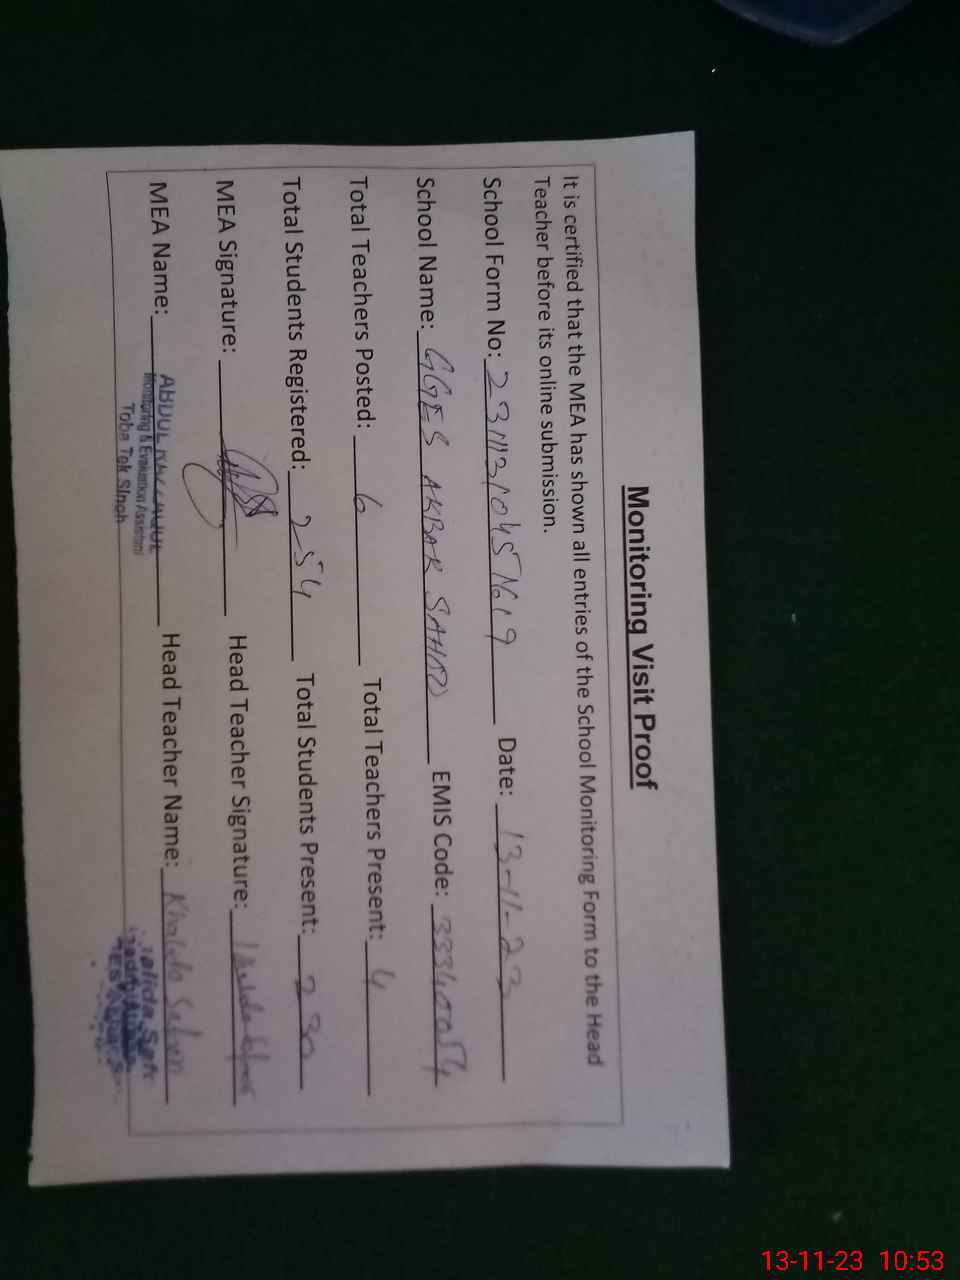 Monitoring Visit Proof
It is certified that the MEA has shown all entries of the School Monitoring Form to the Head
Teacher before its online submission.
School Form No: Date: 13-11-23
School Name: GGES AKBAR EMIS Code:
Total Teachers Posted: 6 Total Teachers Present: 4
Total Students Registered: 254 Total Students Present: 230
MEA Signature: Head Teacher Signature:
MEA Name: ABDUL Head Teacher Name: Khalida
Monitoring & Evaluation Assistant
Toba Tek Singh
13-11-23 10:53